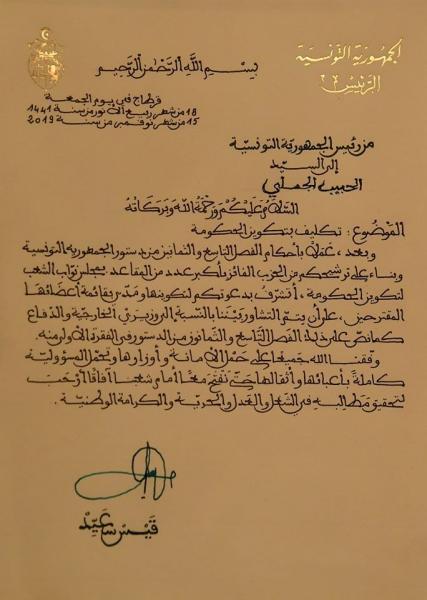 الجمهورية التونسية
الرئيس
بِسْمِ اللَّهِ الرَّحْمٰنِ الرَّحِيمِ
قرطاج في يوم الجمعة
18 من شهر ربيع الأنور من سنة 1441
15 من شهر نوفمبر من سنة 2019
من رئيس الجمهورية التونسية
إلى السيد
الحبيب الجملي
السَّلَامُ عَلَيْكُمْ وَرَحْمَةُ اللَّهِ وَبَرَكَاتُهُ
الموضوع: تكليف بتكوين الحكومة
وبعد، عملا بأحكام الفصل التاسع والثمانين من دستور الجمهورية التونسية
وبناء على ترشيحكم من الحزب الفائز بأكبر عدد من المقاعد بمجلس نواب الشعب
لتكوين الحكومة، أتشرف بدعوتكم لتكوينها ومدّي بقائمة أعضائها
المقترحين، على أن يتم التشاور بيننا بالنسبة إلى وزيري الخارجية والدفاع
كما نص على ذلك الفصل التاسع والثمانون من الدستور في الفقرة الأولى منه.
وفقنا الله جميعا على حمل الأمانة وأوزارها وتحمل المسؤولية
كاملة بأعبائها وأثقالها حتى نفتح معا أمام شعبنا آفاقا أرحب
لتحقيق مطالبه في الشغل والعدل والحرية والكرامة الوطنية.
قيس سعيّد